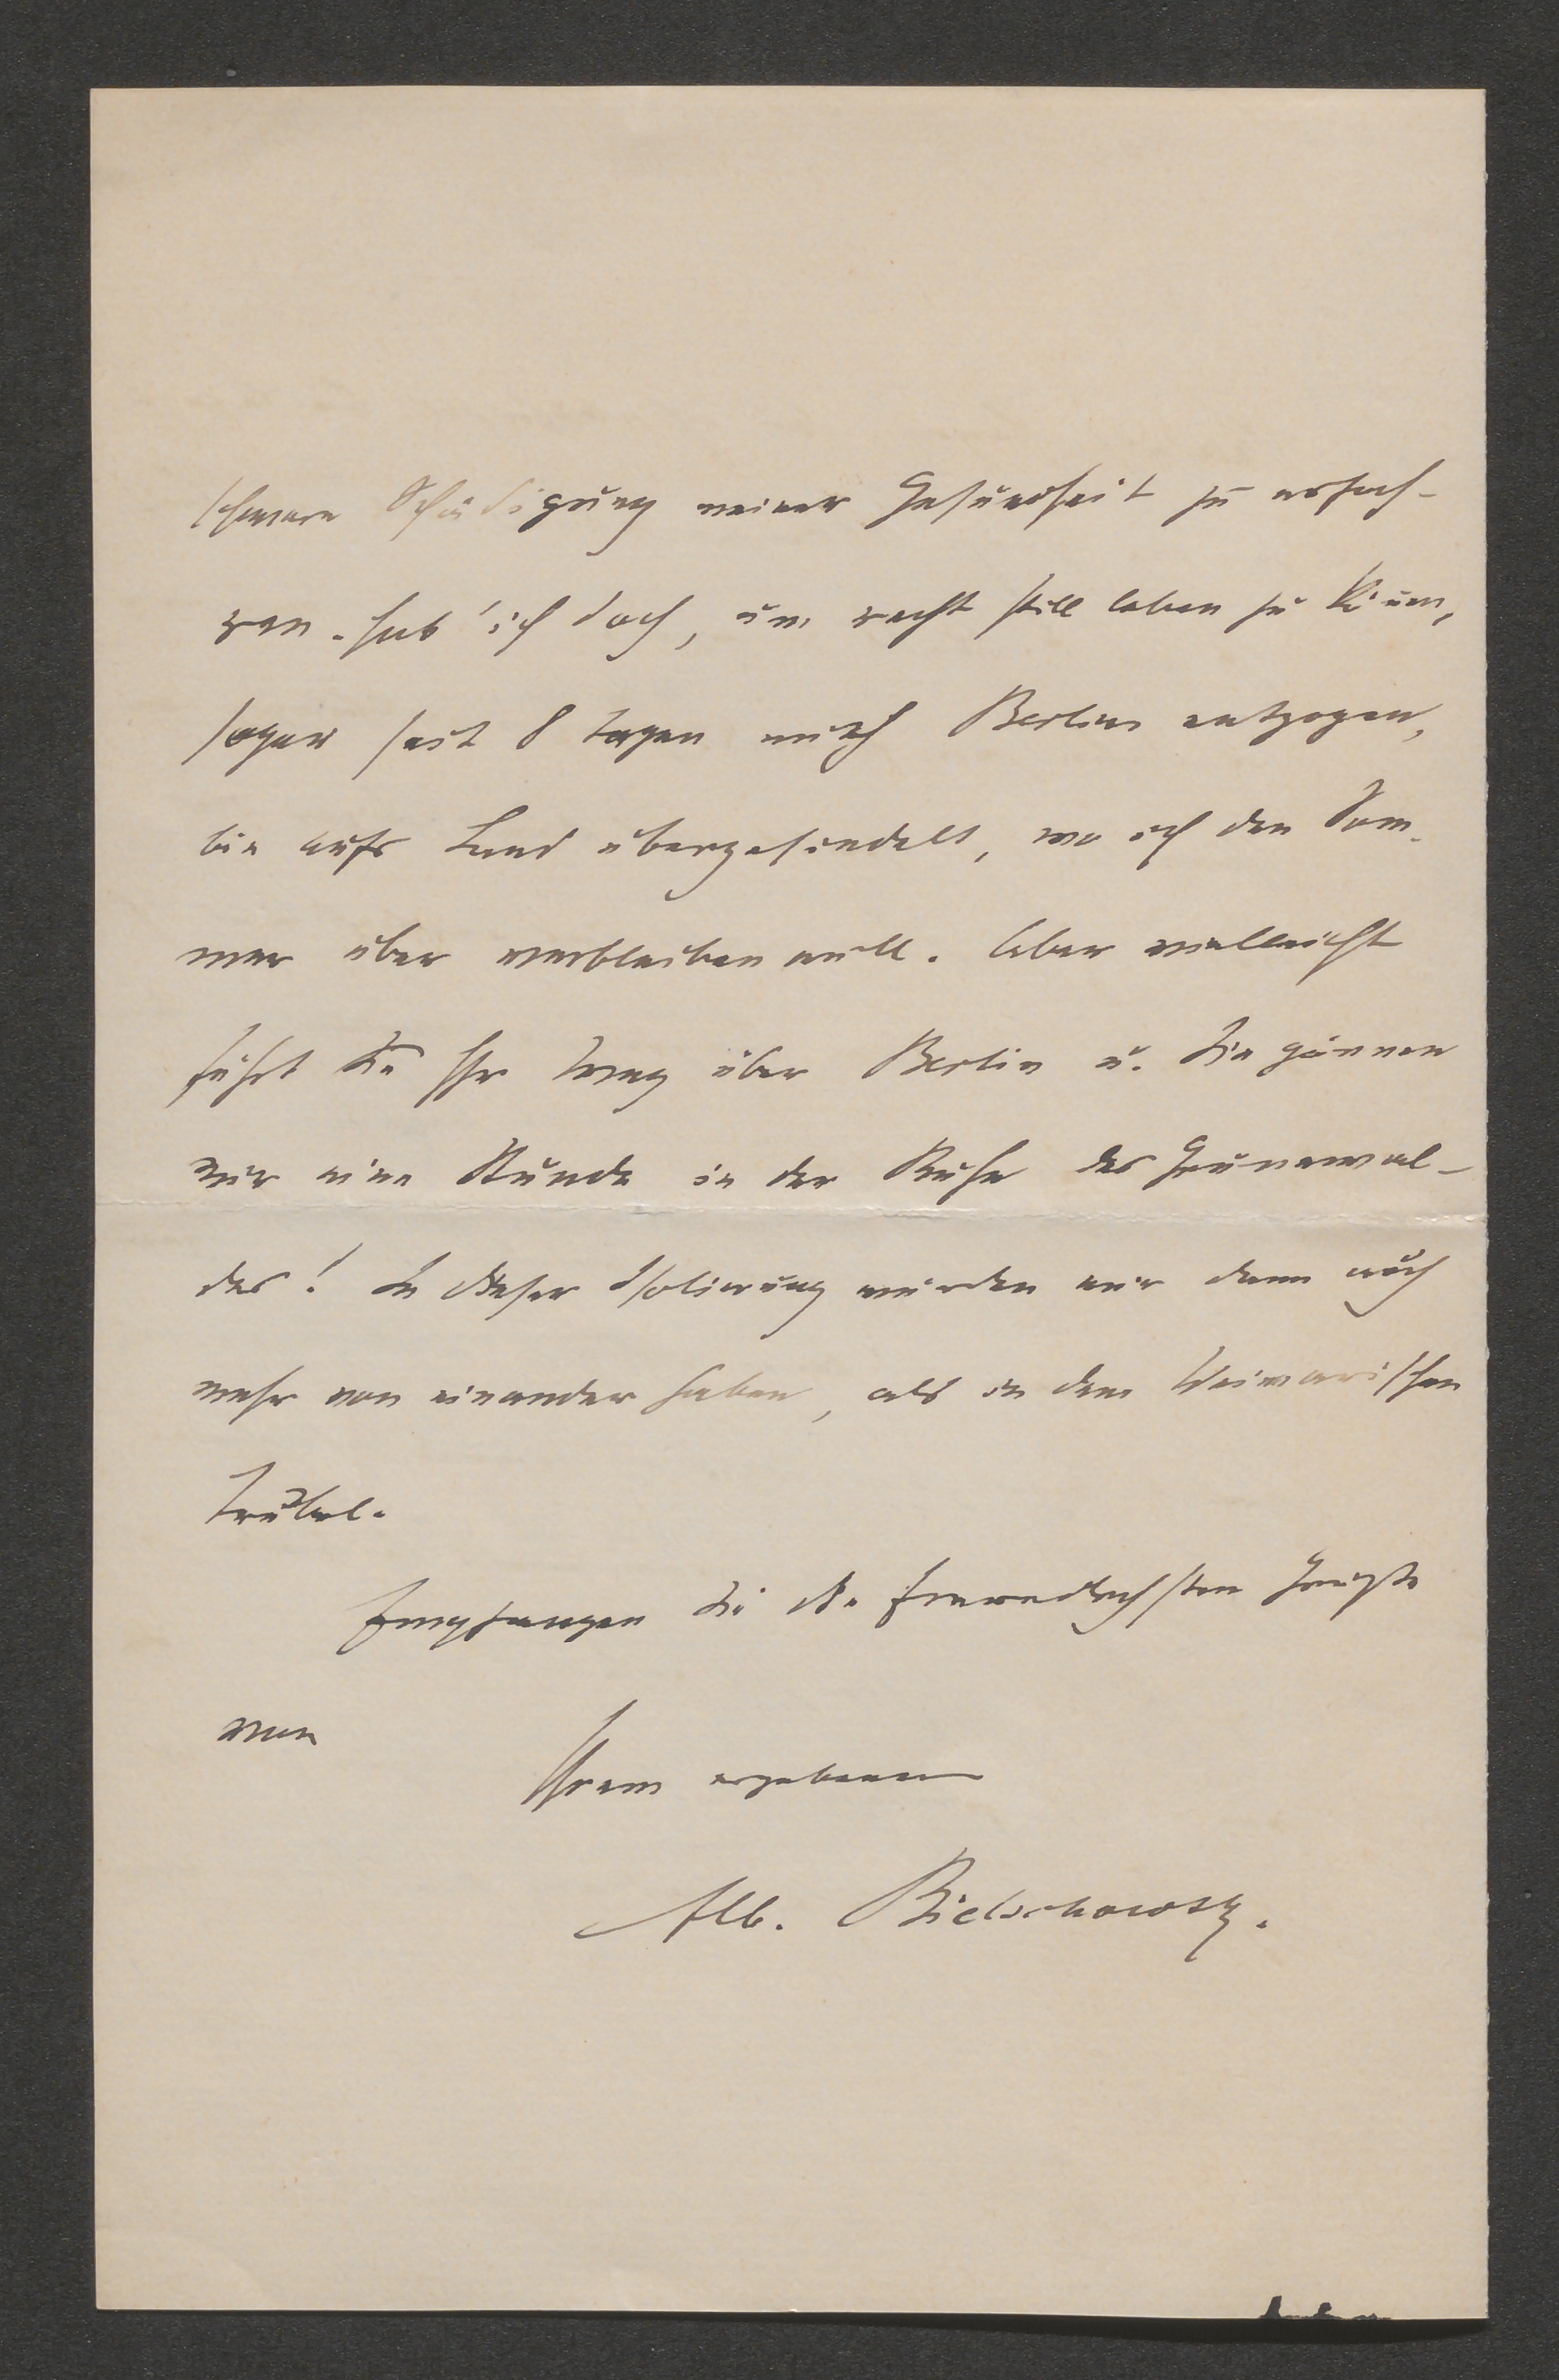 schwere Schädigung meiner Gesundheit zu erfah-
ren. Hab' ich doch, um recht still leben zu könen,
sogar seit 8 Tagen mich Berlin entzogen,
bin aufs Land übergesiedelt, wo ich den Som-
mer über verbleiben will. Aber vielleicht
führt Sie Ihr Weg über Berlin u. Sie gönnen
mir eine Stunde in der Ruhe des Grunewal-
des! In dieser Isolierung würden wir dann auch
mehr von einander haben, als in dem Weimarischen
Trubel.
Empfangen Sie die freundlichsten Grüße
von
Ihrem ergebenen
Alb. Bielschowsky.